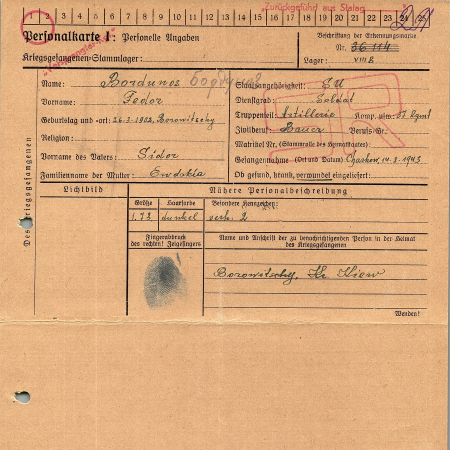 1 2 3 4 5 6 7 8 9 10 11 12 13 14 15 16 17 18 19 20 21 22 23 24 25
Zurückgeführt aus Stalag
Personalkarte I: Personelle Angaben
Kriegsgefangenen-Stammlager:
Beschriftung der Erkennungsmarke
Nr. 36114
Lager: VIII B
Des Kriegsgefangenen
Name: Bordunos
Vorname: Fedor
Geburtstag und -ort: 26.2.1902, Borowitschy
Religion:
Vorname des Vaters: Sidor
Familienname der Mutter: Ewdokia
Staatsangehörigkeit: SU
Dienstgrad: Soldat
Truppenteil: Artillerie Komp. usw.:
Zivilberuf: Bauer Berufs-Gr.
Matrikel Nr. (Stammrolle des Heimatstaates)
Gefangennahme (Ort und Datum) Charkow 14.3.1943
Ob gesund, krank, verwundet eingeliefert:
Lichtbild
Nähere Personalbeschreibung
Größe Haarfarbe Besondere Kennzeichen:
1.73 dunkel
Fingerabdruck
des rechten! Zeigefingers
Name und Anschrift der zu benachrichtigenden Person in der Heimat
des Kriegsgefangenen
Borowitschy, Kr. Kiew
Wenden!